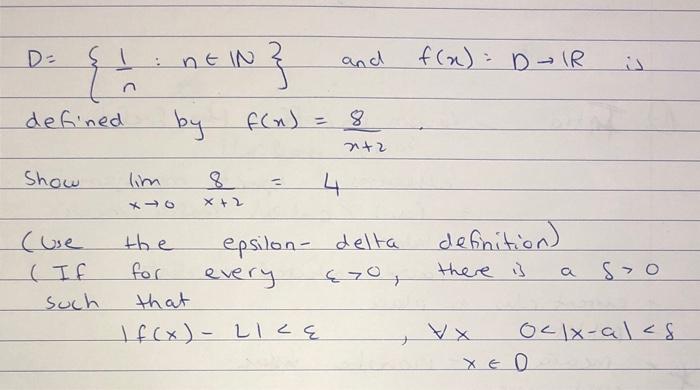 D = { 1/n : n ∈ ℕ } and f(x) : D → ℝ is
defined by f(x) = 8/(x+2) .
Show lim x→0 8/(x+2) = 4
(Use the epsilon-delta definition)
( If for every ε>0, there is a δ>0
such that
|f(x) - L| < ε , ∀x 0<|x-a|<δ
x ∈ D